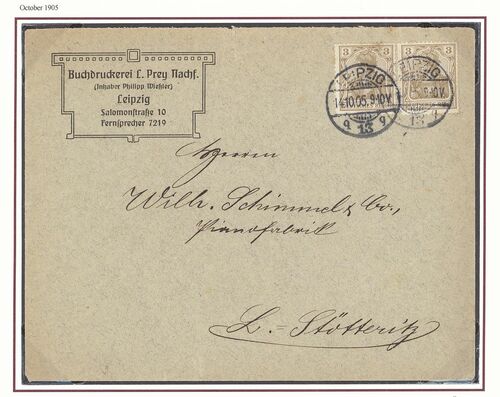 October 1905
Buchdruckerei L. Prey Nachf.
(Inhaber Philipp Wießler)
Leipzig
Salomonstraße 10
Fernsprecher 7219
3 3 3 3
LEIPZIG
14.10.05. 9-10V.
13
LEIPZIG
9-10V.
13
Herren
Wilh. Schimmel & Co.,
Pianofabrik
L.=Stötteritz